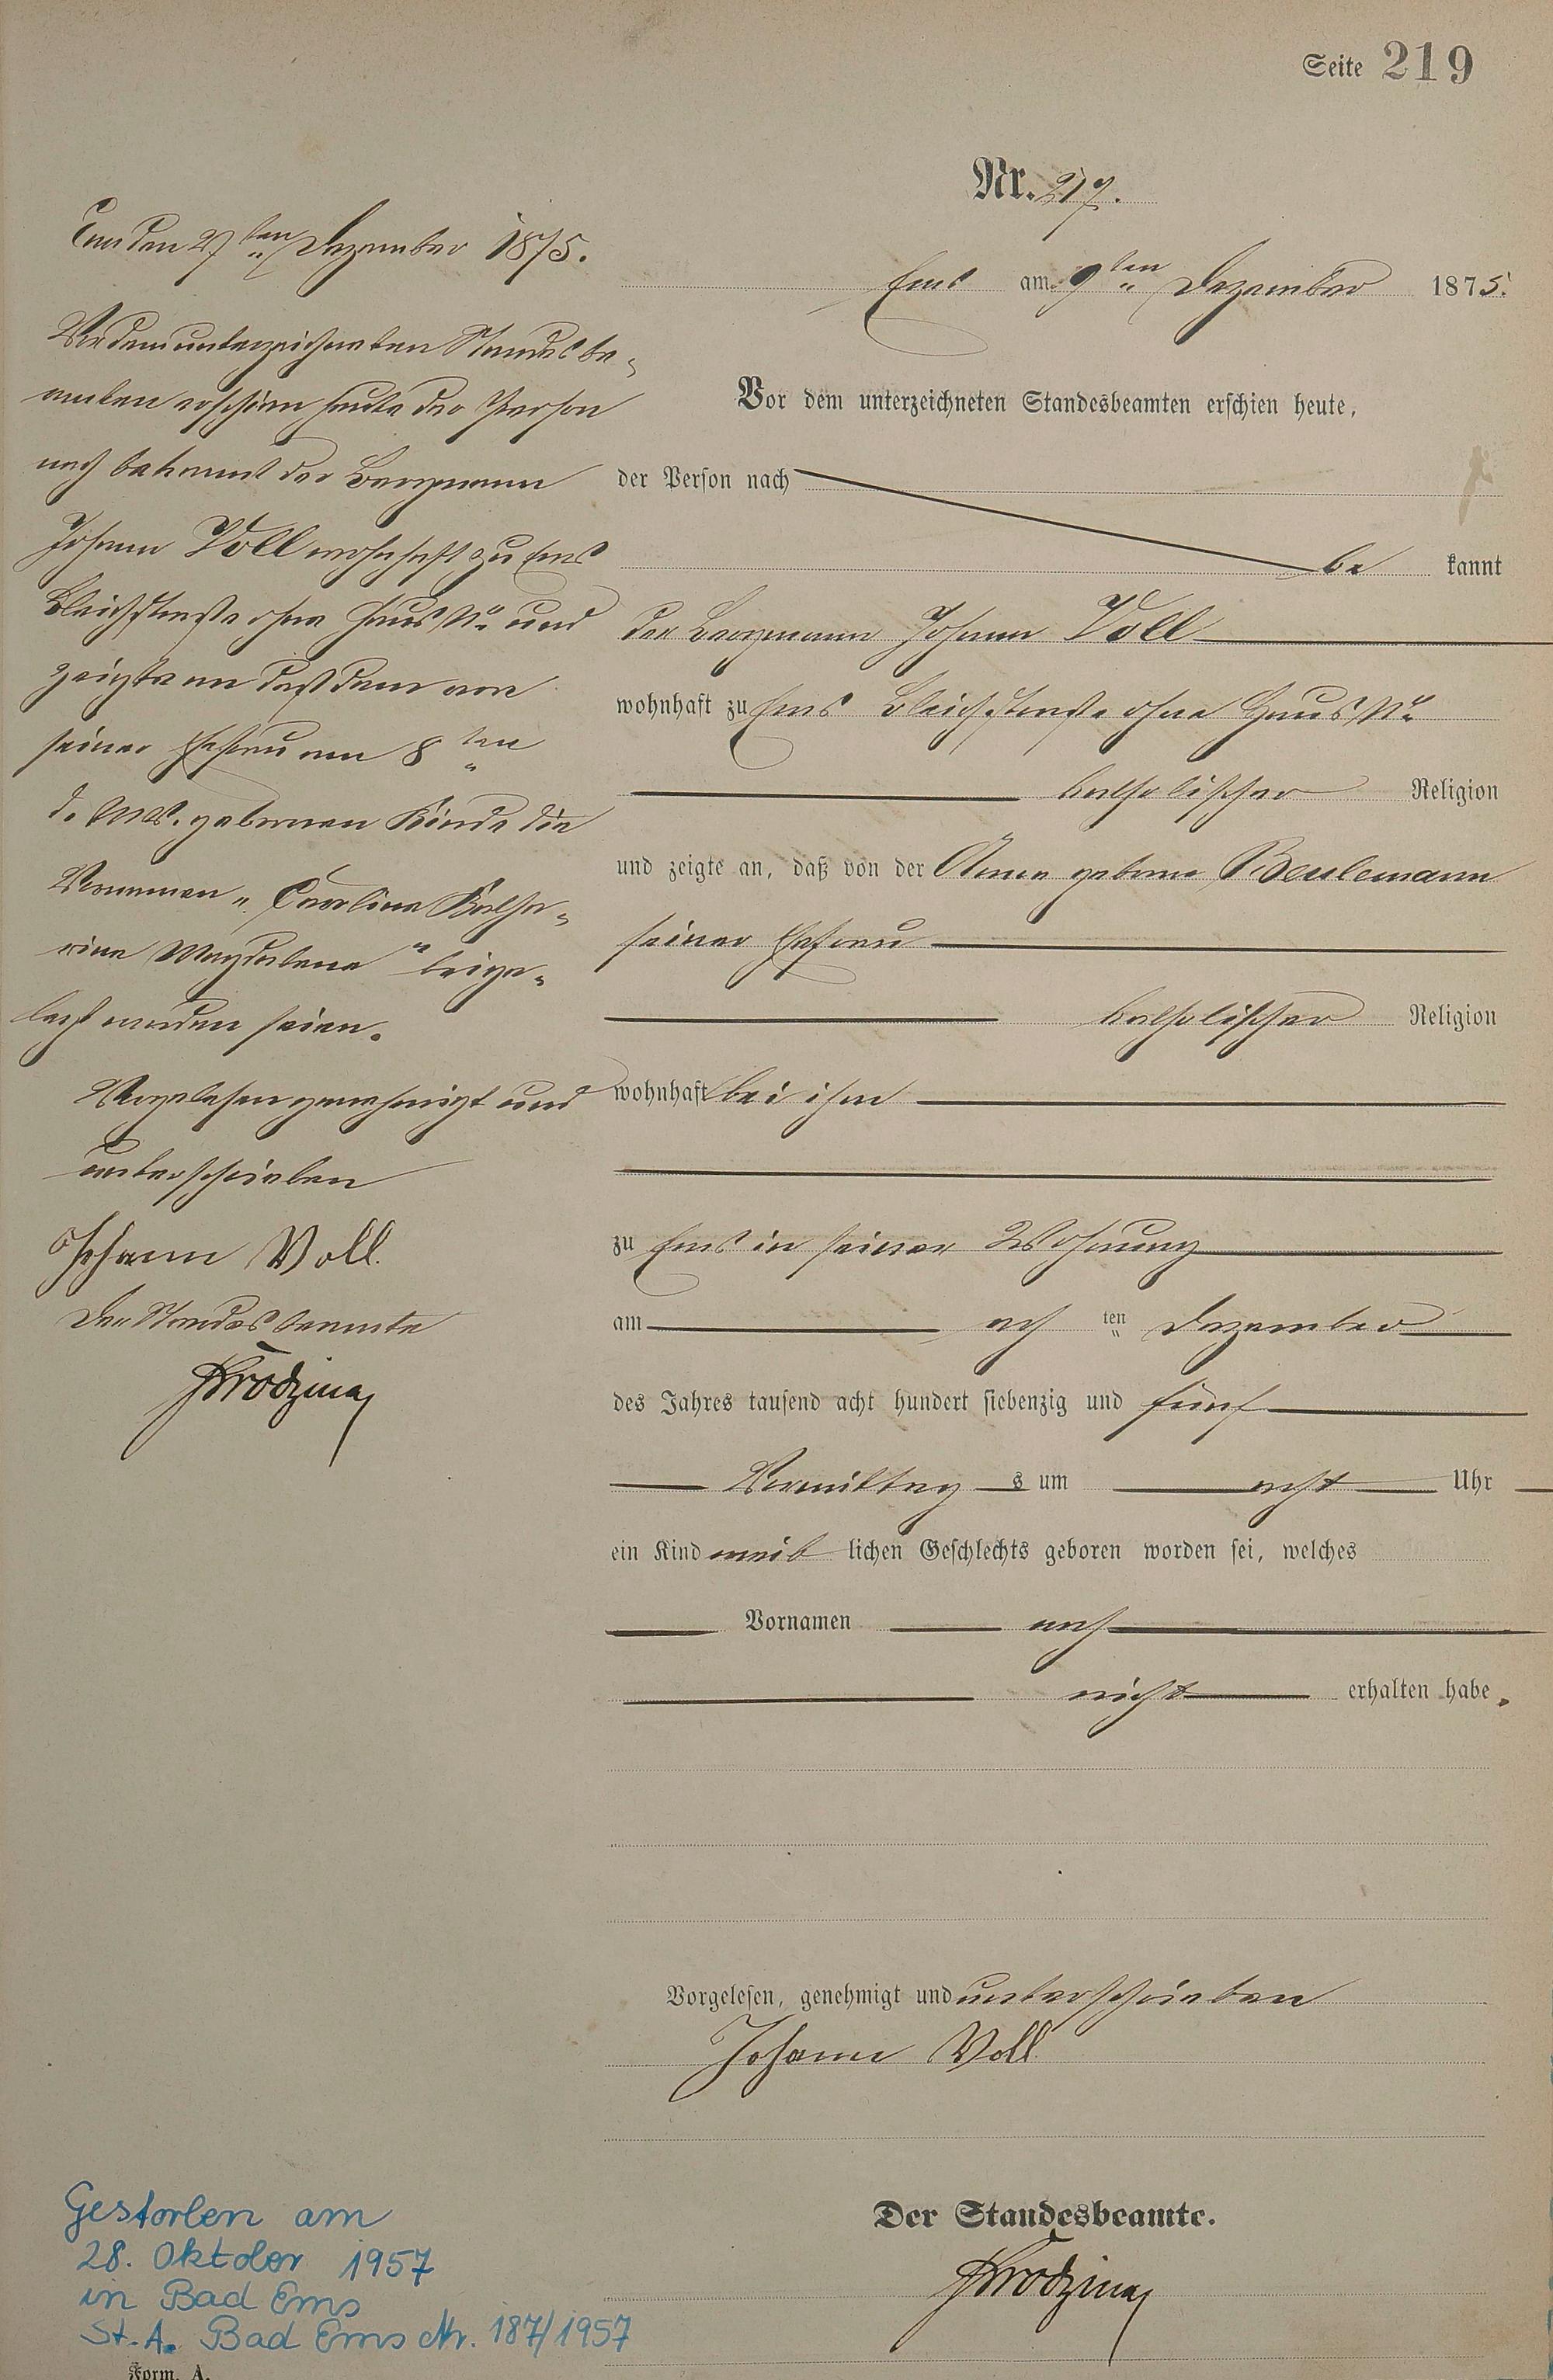 Seite 219
Nr. 217.
Ems am 9ten Dezember 1875.
Vor dem unterzeichneten Standesbeamten erschien heute,
der Person nach
be kannt
der Bergmann Johann Voll
wohnhaft zu Ems Bleichstraße ohne Haus No
katholischer Religion
und zeigte an, daß von der Anna geborne Beulemann
seiner Ehefrau
katholischer Religion
wohnhaft bei ihm
zu Ems in seiner Wohnung
am ach ten Dezember
des Jahres tausend acht hundert siebenzig und fünf
Vormittag s um acht Uhr
ein Kind weib lichen Geschlechts geboren worden sei, welches
Vornamen noch
nicht erhalten habe.
Vorgelesen, genehmigt und unterschrieben
Johann Voll
Der Standesbeamte.
Ems den 27ten Dezember 1875.
Vor dem unterzeichneten Standesbe-
amten erschien heute der Person
nach bekannt der Bergmann
Johann Voll wohnhaft zu Ems
Bleichstraße ohne Haus No und
zeigte an daß dem von
seiner Ehefrau am 8ten
d. Mts. gebornen Kinde die
Vornamen „Carolina Katha-
rina Magdalena" beige-
legt worden seien.
Vorgelesen genehmigt und
unterschrieben
Johann Voll.
Der Standesbeamte
Gestorben am
28. Oktober 1957
in Bad Ems
St. A. Bad Ems Nr. 187/1957
Form. A.